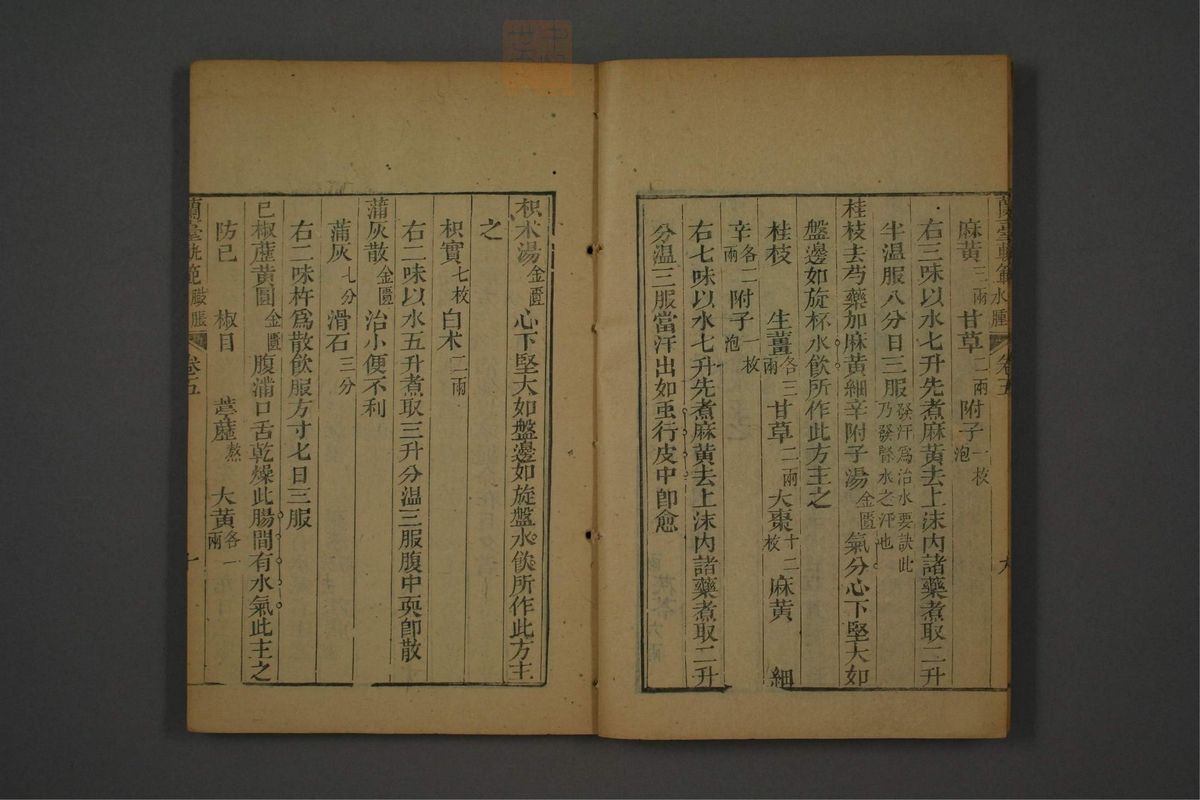 蘭臺軌範 水腫 卷五 九
麻黃三兩 甘草二兩 附子一枚泡
右三味以水七升先煮麻黃去上沫內諸藥煮取二升
半溫服八分日三服發汗爲治水要訣此乃發腎水之汗也
桂枝去芍藥加麻黃細辛附子湯金匱 氣分心下堅大如
盤邊如旋杯水飲所作此方主之
桂枝 生薑各三兩 甘草二兩 大棗十二枚 麻黃 細
辛各二兩 附子一枚泡
右七味以水七升先煮麻黃去上沫內諸藥煮取二升
分溫三服當汗出如虫行皮中卽愈
枳朮湯金匱 心下堅大如盤邊如旋盤水飲所作此方主
之
枳實七枚 白朮二兩
右二味以水五升煮取三升分溫三服腹中耎卽散
蒲灰散金匱 治小便不利
蒲灰七分 滑石三分
右二味杵爲散飲服方寸匕日三服
已椒藶黃圓金匱 腹滿口舌乾燥此腸間有水氣此主之
防已 椒目 葶藶熬 大黃各一兩
蘭臺軌範 臌脹 卷五 十